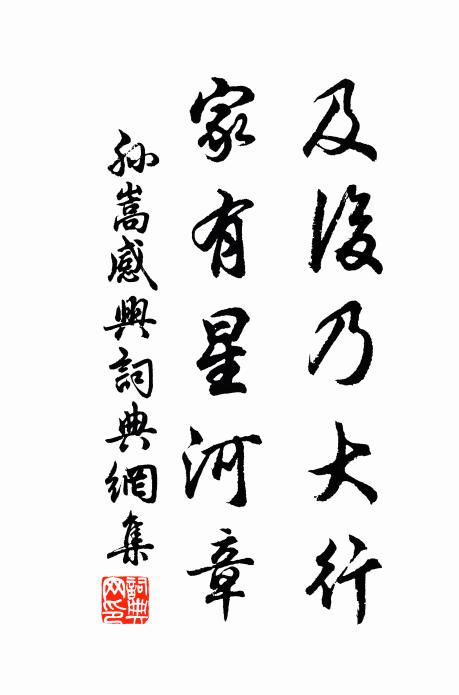 及後乃大行
家有星河章
孫嵩感興詞典網集
詞典網印